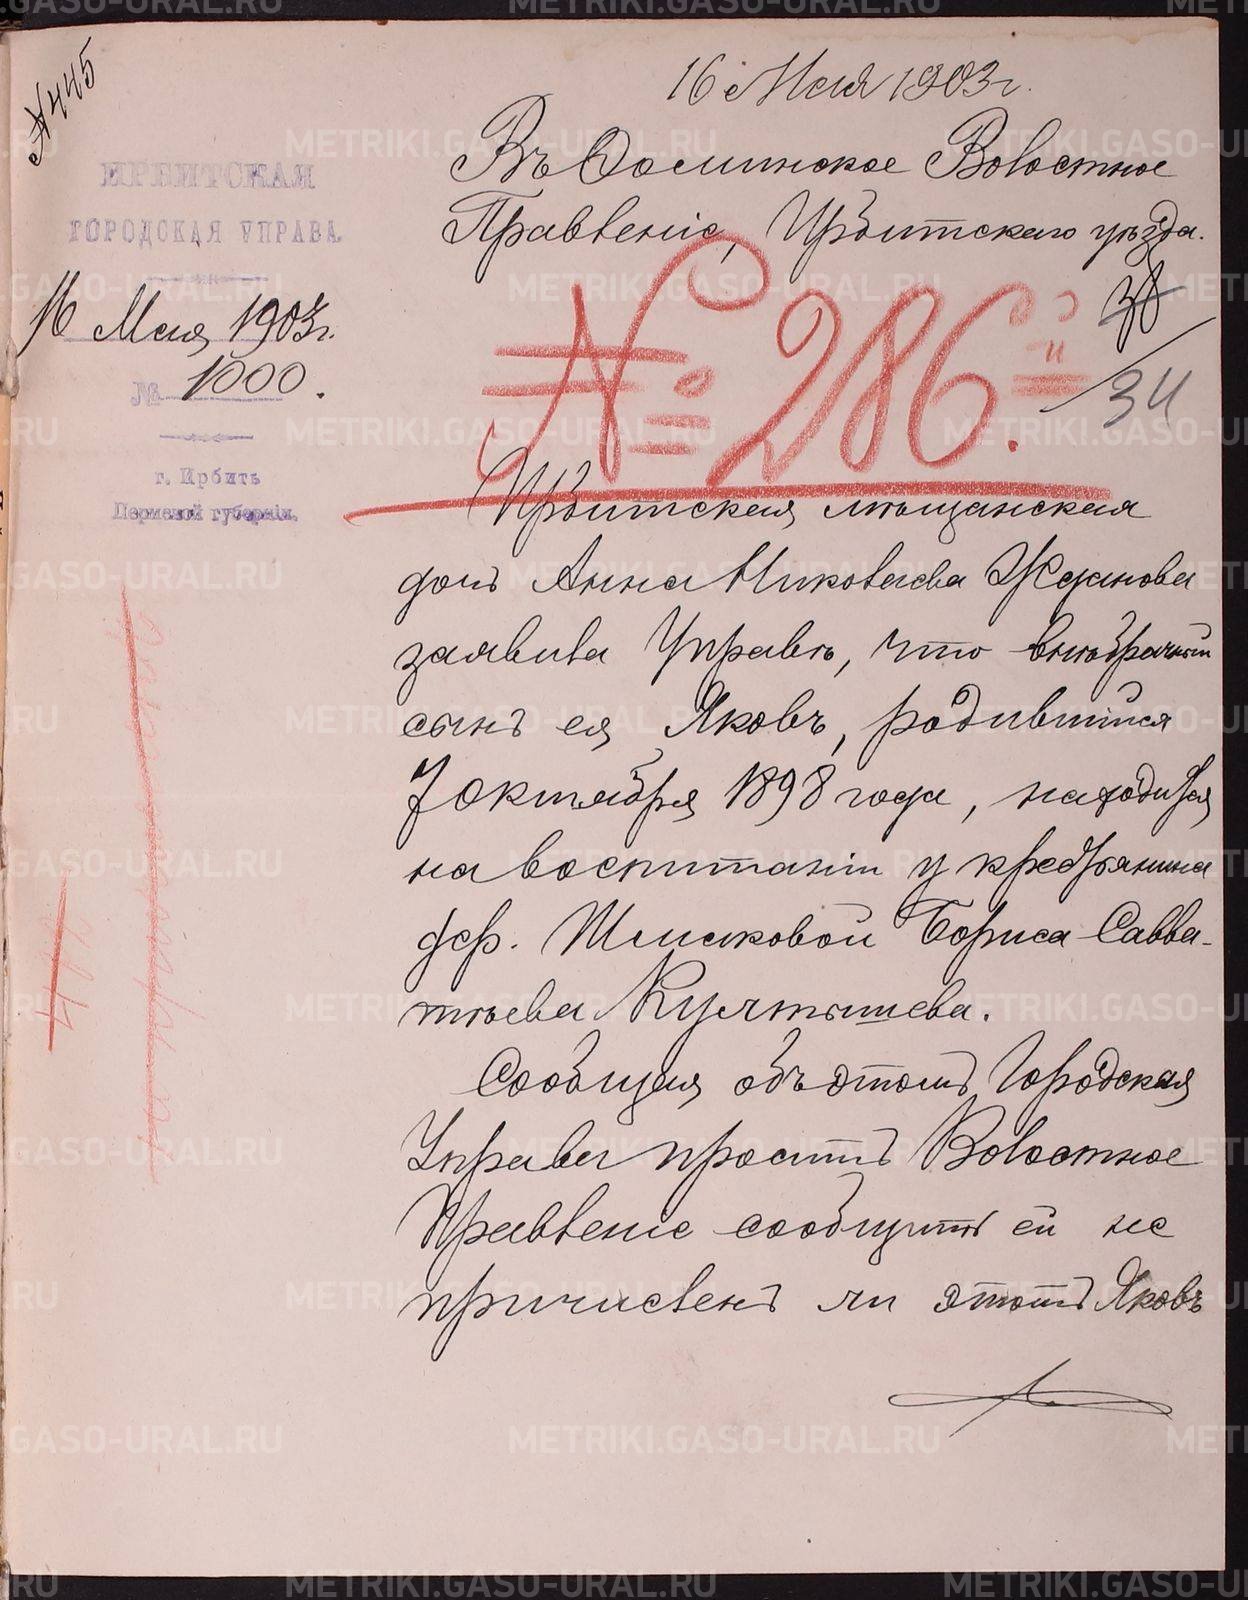 № 445
16 Мая 1903 г.
ИРБИТСКАЯ
ГОРОДСКАЯ УПРАВА.
16 Мая 1903 г.
№ 1000.
г. Ирбить
Пермской губерніи.
Въ Волостное
Правленіе, Ирбитскаго уѣзда.
38
34
№ 286.
Ирбитская мѣщанская
дочь Анна Николаева Жданова
заявила Управѣ, что внѣбрачный
сынъ ея Яковъ, родившійся
7 октября 1898 года, находится
на воспитаніи у крестьянина
дер. Шмаковой Бориса Савва-
тѣева Култышева.
Сообщая объ этомъ Городская
Управа проситъ Волостное
Правленіе сообщить ей не
причисленъ ли этотъ Яковъ
METRIKI.GASO-URAL.RU